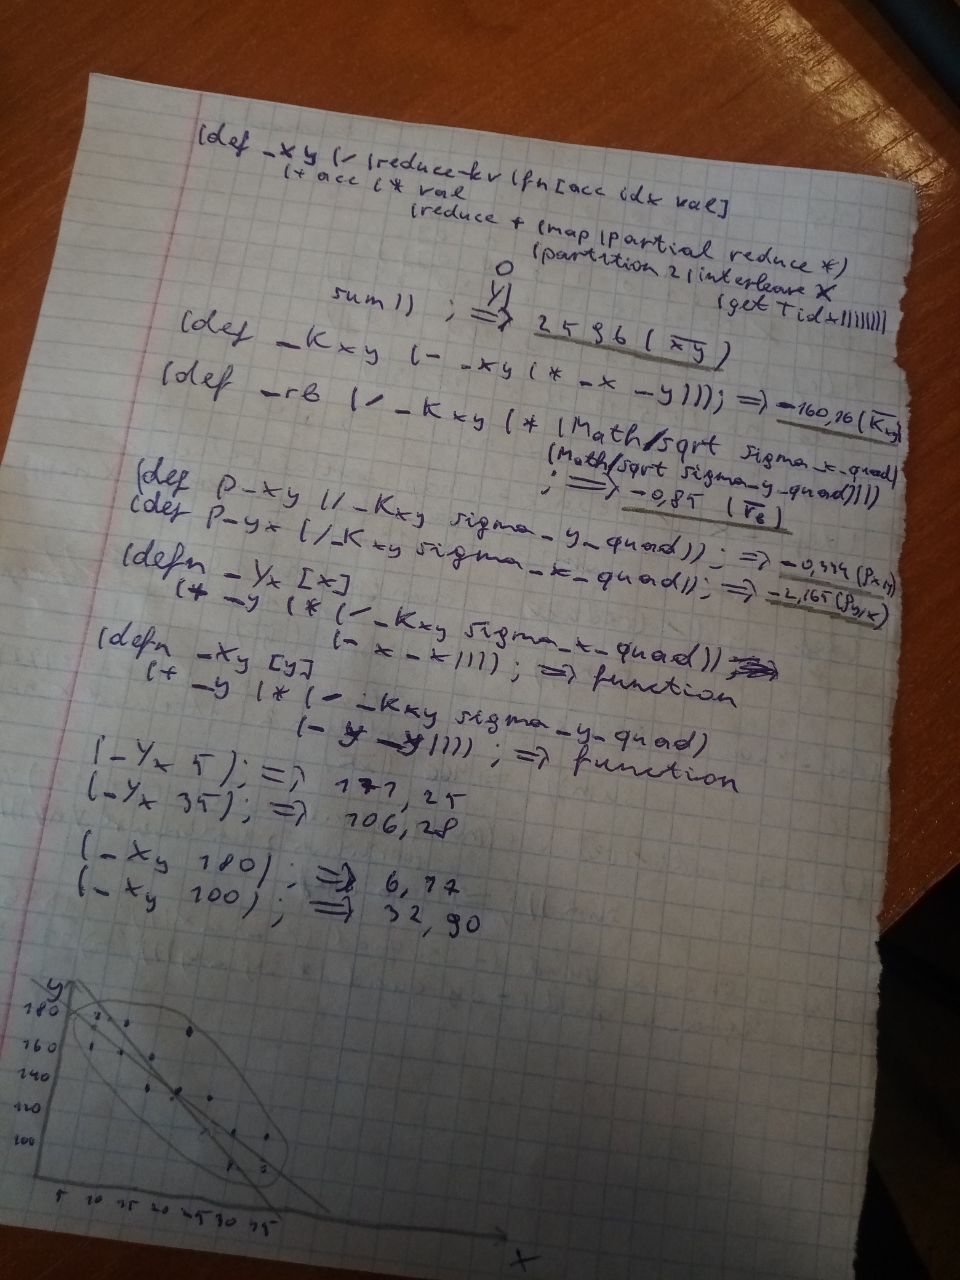 (def _xy (/ (reduce-kv (fn [acc idx val]
(+ acc (* val
(reduce + (map (partial reduce *)
(partition 2 (interleave X
(get T idx))))))))
O
Y)
sum)) ; => 2596 (xy)
(def _Kxy (- _xy (* _x _y)))); => -160,16 (Kxy)
(def _rB (/ _Kxy (* (Math/sqrt sigma_x_quad)
(Math/sqrt sigma_y_quad))))
; => -0,85 (rB)
(def p-xy (/ _Kxy sigma_y_quad)) ; => -0,334 (ρx/y)
(def p-yx (/ _Kxy sigma_x_quad)); => -2,165 (ρy/x)
(defn _Yx [x]
(+ _y (* (/ _Kxy sigma_x_quad))
(- x _x)))) ; => function
(defn _Xy [y]
(+ _y (* (/ _Kxy sigma_y_quad)
(- y _y)))) ; => function
(_Yx 5) ; => 171,25
(_Yx 35) ; => 106,28
(_Xy 180) ; => 6,17
(_Xy 100) ; => 32,90
y
180
160
140
120
100
5 10 15 20 25 30 35
X